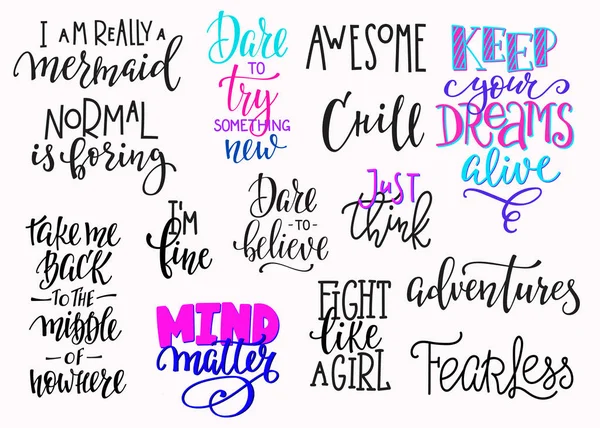 I AM REALLY A
mermaid
NORMAL
is boring
Dare
TO
try
SOMETHING
new
AWESOME
CHill
KEEP
your
DREAMS
alive
take me
BACK
-TO THE-
middle
-OF-
nowhere
I'M
fine
Dare
-TO-
believe
JUST
think
MIND
matter
FIGHT
like
A GIRL
adventures
FEARLESS